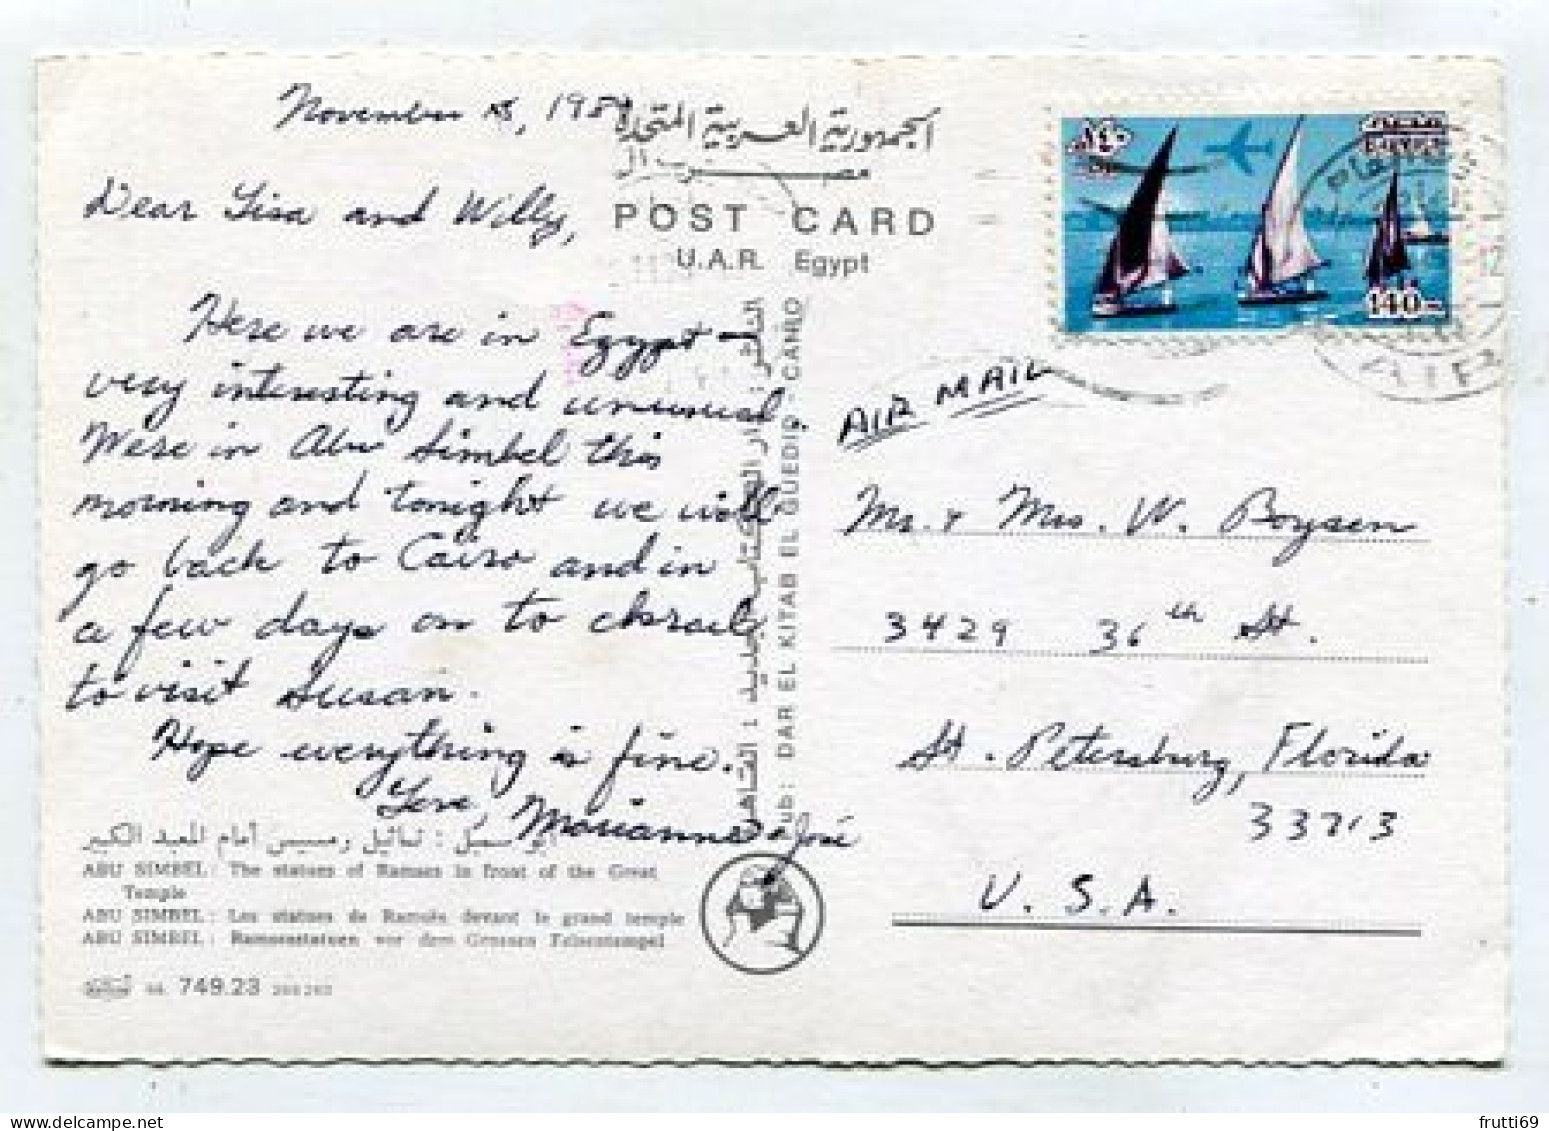 November 8, 198
الجمهورية العربية المتحدة
مصر
POST CARD
U.A.R. Egypt
Dear Lisa and Willy,
Here we are in Egypt –
very interesting and unusual.
Were in Abu Simbel this
morning and tonight we will
go back to Cairo and in
a few days on to Israel
to visit Susan.
Hope everything is fine.
Love, Marianne + José
أبو سمبل : تماثيل رمسيس أمام المعبد الكبير
ABU SIMBEL: The statues of Ramses in front of the Great
Temple
ABU SIMBEL: Les statues de Ramsès devant le grand temple
ABU SIMBEL: Ramsesstatuen vor dem Grossen Felsentempel
749.23
الناشر : دار الكتاب الجديد : القاهرة
Pub: DAR EL KITAB EL GUEDID - CAIRO
140
AIR
AIR MAIL
Mr. + Mrs. W. Boysen
3429 36th St.
St. Petersburg, Florida
33713
U.S.A.
frutti69